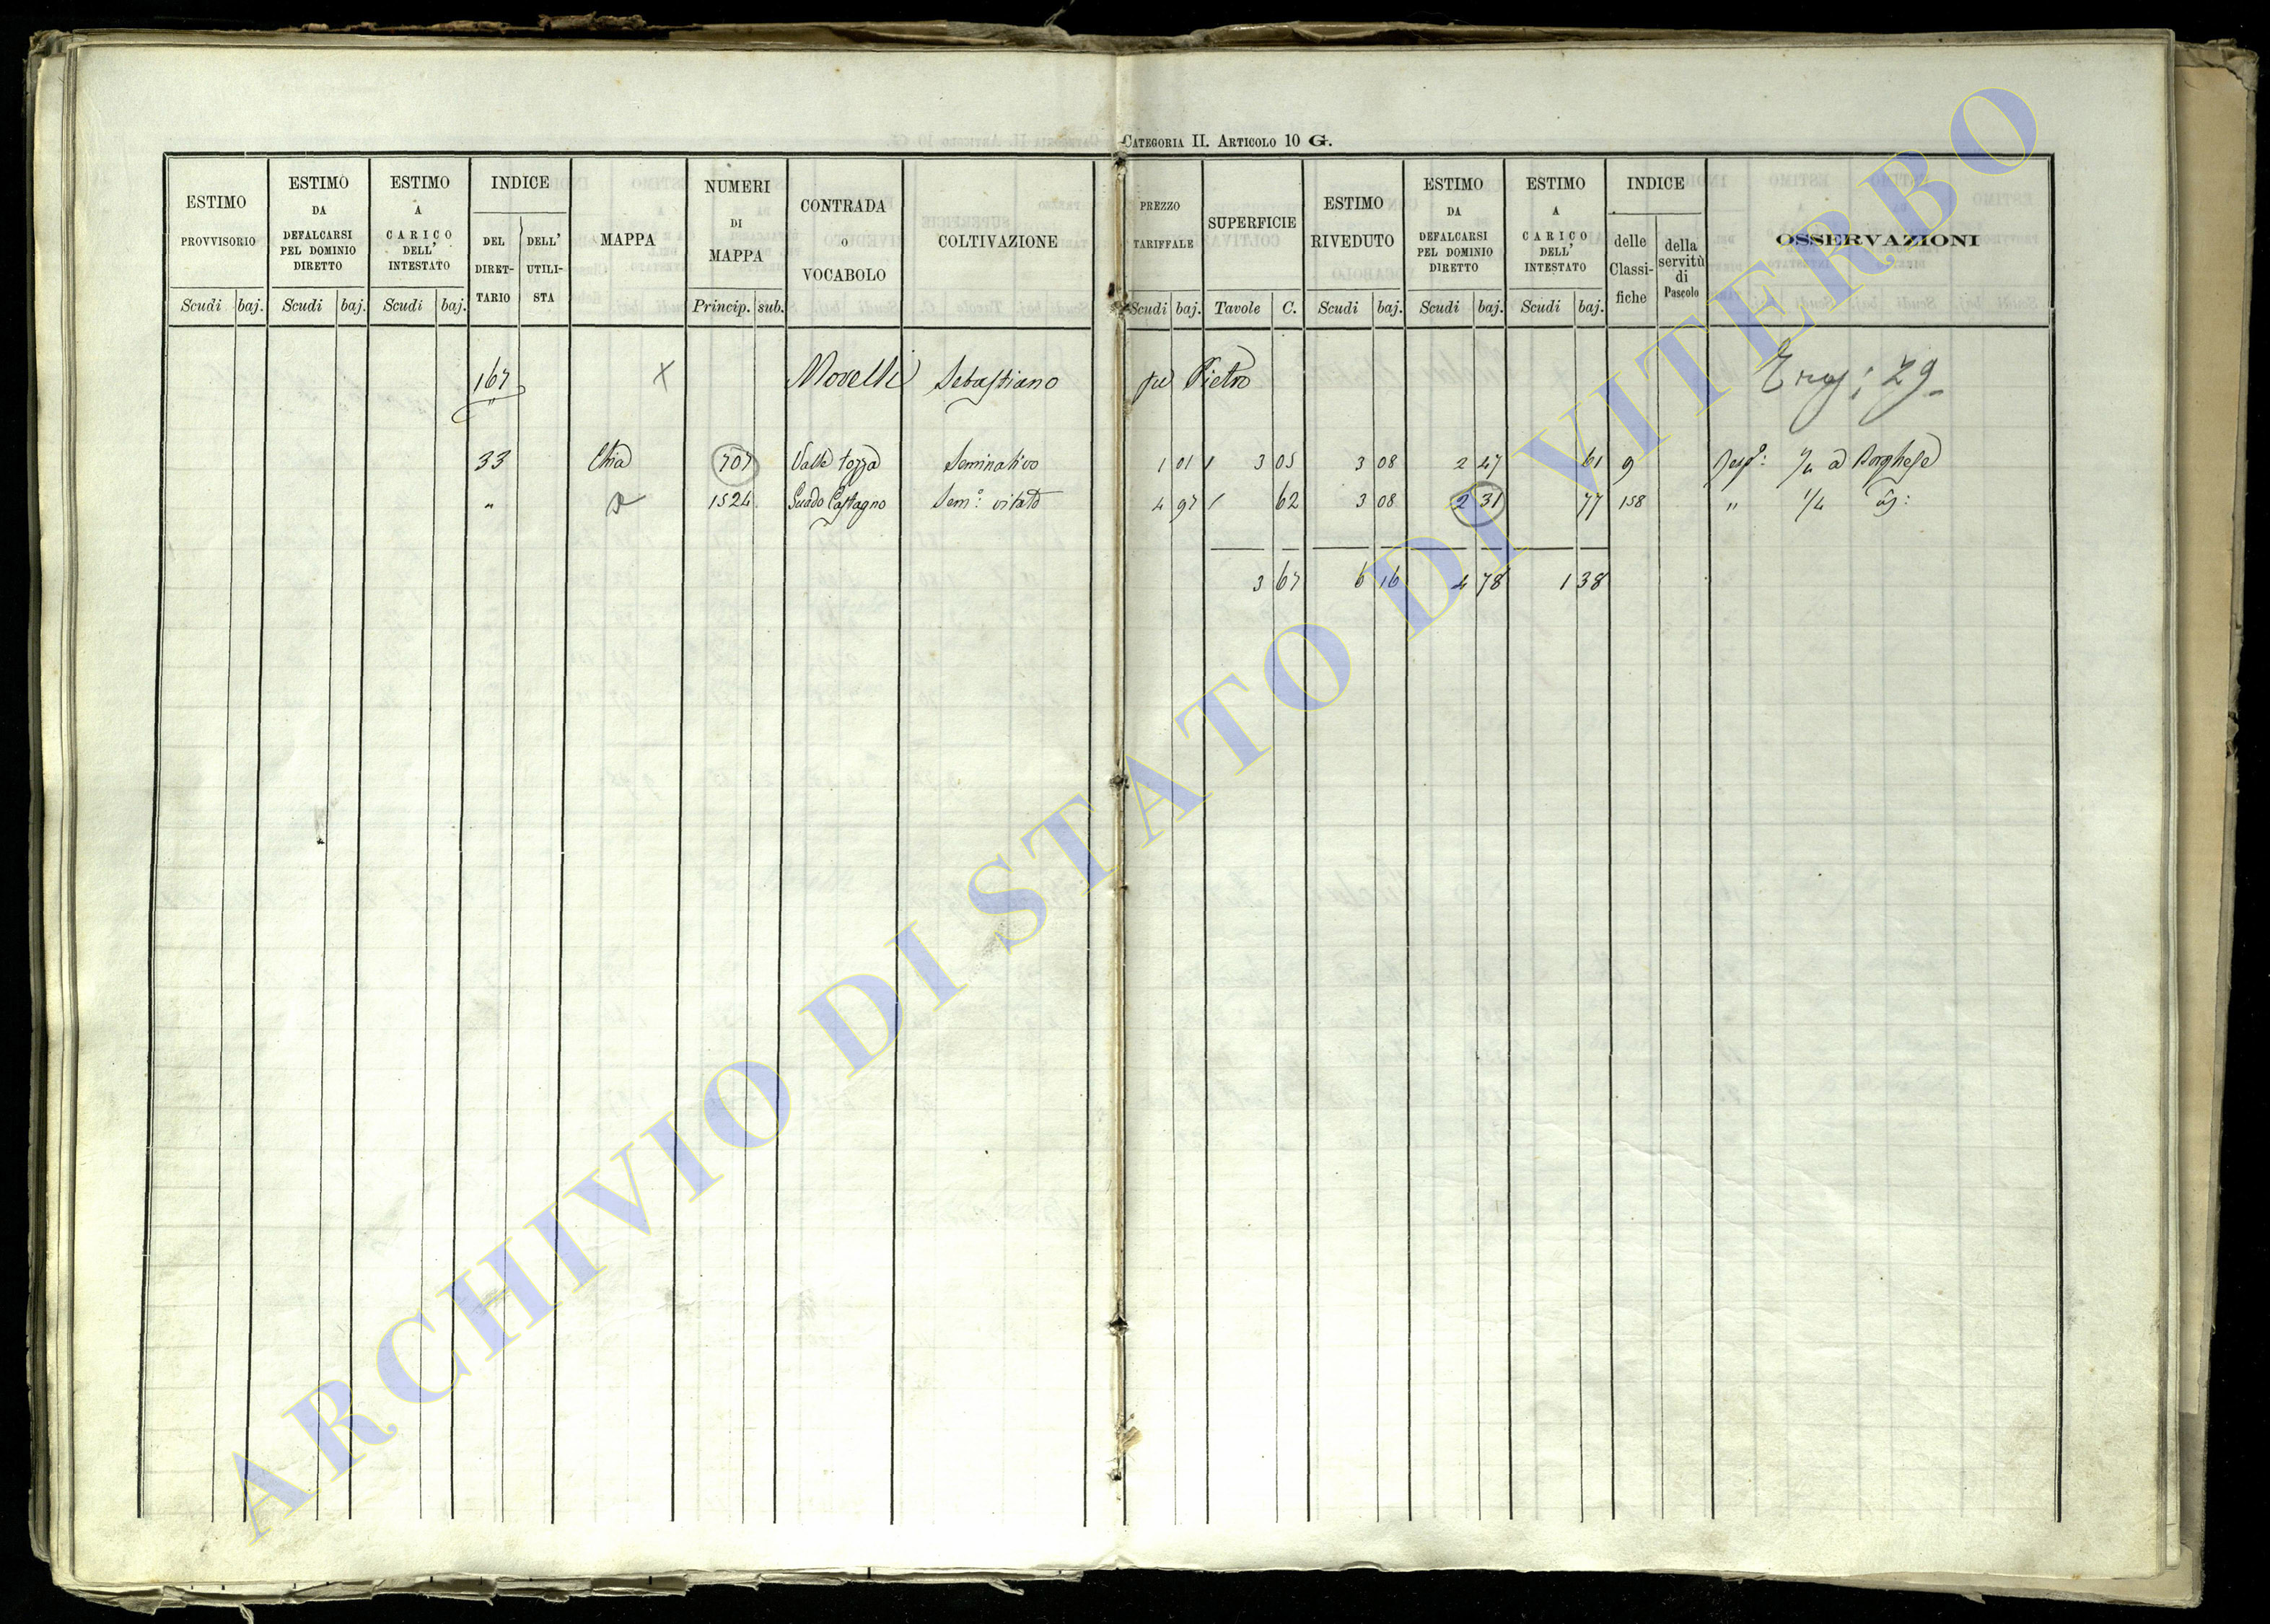 CATEGORIA II. ARTICOLO 10 G.
ESTIMO PROVVISORIO Scudi baj.
ESTIMO DA DEFALCARSI PEL DOMINIO DIRETTO Scudi baj.
ESTIMO A CARICO DELL' INTESTATO Scudi baj.
INDICE DEL DIRET-TARIO DELL' UTILI-STA
MAPPA
NUMERI DI MAPPA Princip. sub.
CONTRADA o VOCABOLO
COLTIVAZIONE
PREZZO TARIFFALE Scudi baj.
SUPERFICIE Tavole C.
ESTIMO RIVEDUTO Scudi baj.
ESTIMO DA DEFALCARSI PEL DOMINIO DIRETTO Scudi baj.
ESTIMO A CARICO DELL' INTESTATO Scudi baj.
INDICE delle Classi-fiche della servitù di Pascolo
OSSERVAZIONI
167 x Novelli Sebastiano fu Pietro 29
33 Chia 707 Valle Seminativo 1 01 3 05 3 08 2 47 61 9 a Borghese
" 1524 Guado Castagno Sem: vitato 4 97 62 3 08 2 31 77 158 " 1/4
3 67 6 16 4 78 1 38
ARCHIVIO DI STATO DI VITERBO